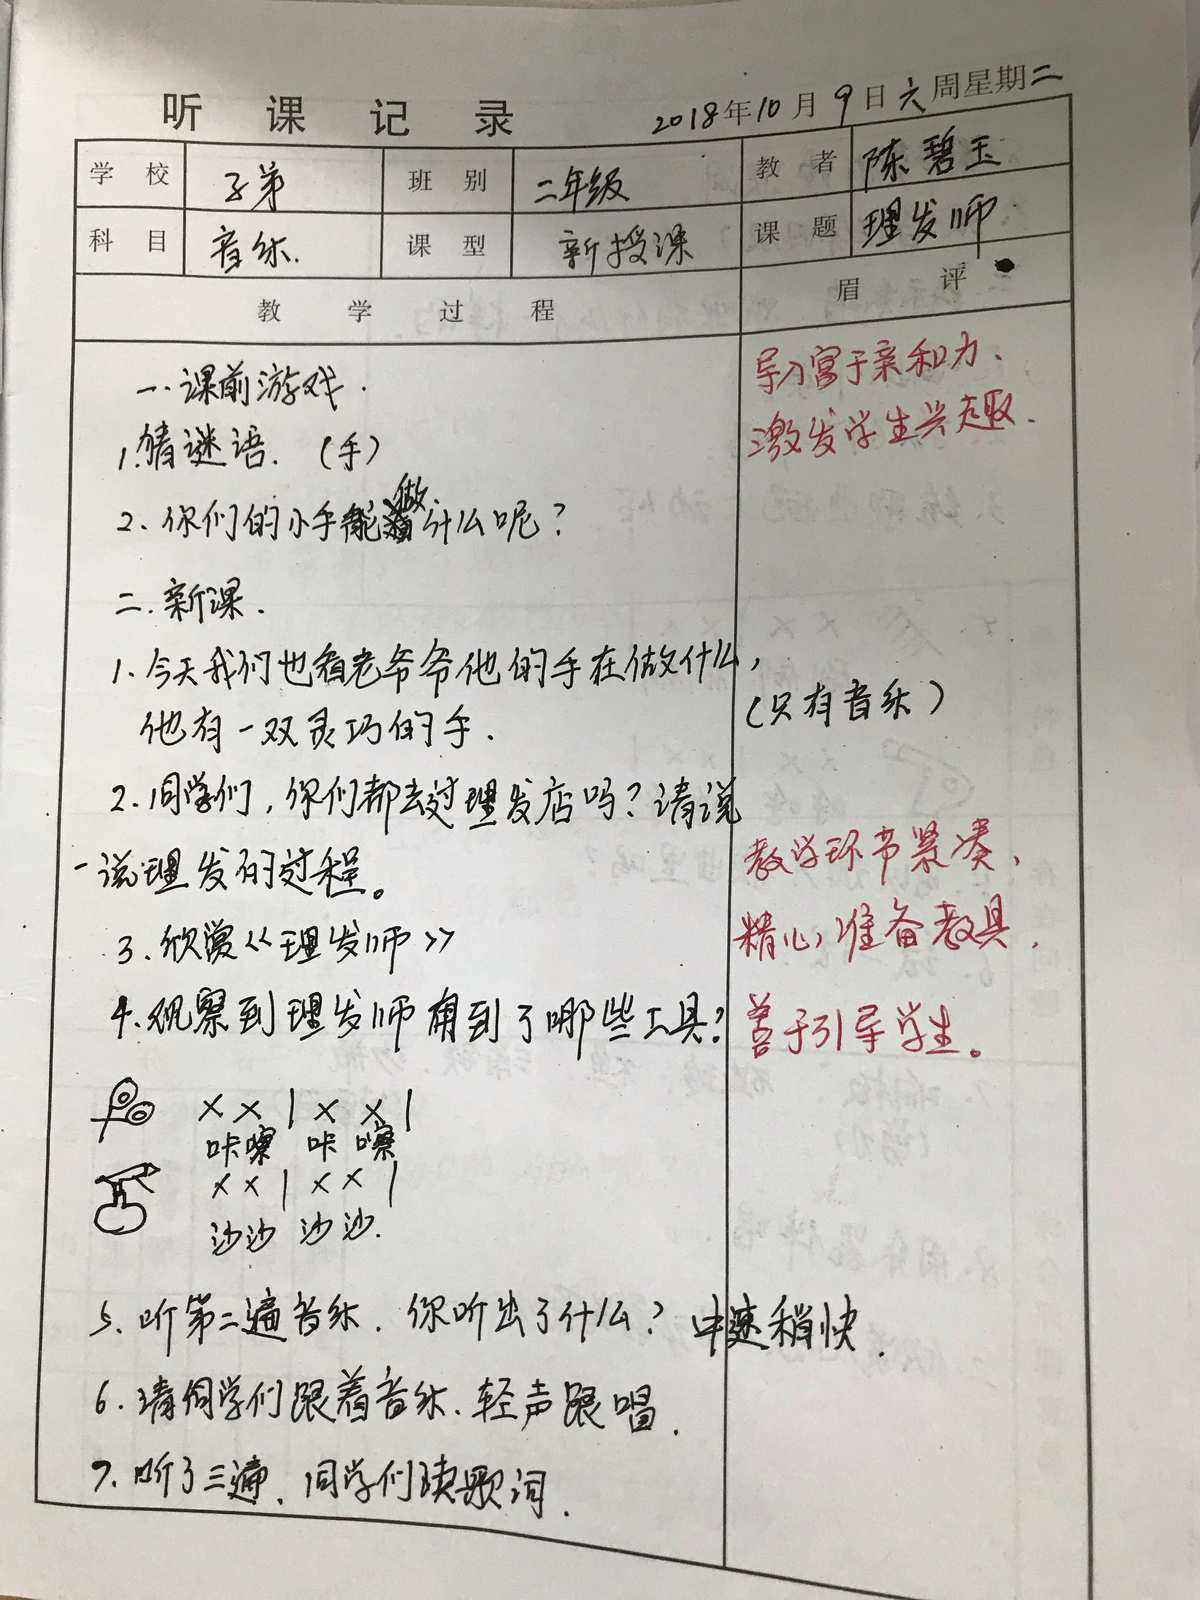 听课记录 2018年10月9日六周星期二
学校 子弟 班别 二年级 教者 陈碧玉
科目 音乐. 课型 新授课 课题 理发师
教学过程 眉评
一.课前游戏.
1.猜谜语.(手)
2.你们的小手能做什么呢?
二.新课.
1.今天我们也看老爷爷他的手在做什么,
他有一双灵巧的手.
2.同学们,你们都去过理发店吗?请说
一说理发的过程。
3.欣赏《理发师》
4.观察到理发师用到了哪些工具?
X X | X X |
咔嚓 咔嚓
X X | X X |
沙沙 沙沙.
5.听第二遍音乐.你听出了什么?中速稍快.
6.请同学们跟着音乐.轻声跟唱.
7.听了三遍、同学们读歌词.
导入富于亲和力.
激发学生兴趣.
(只有音乐)
教学环节紧凑,
精心准备教具.
善于引导学生。